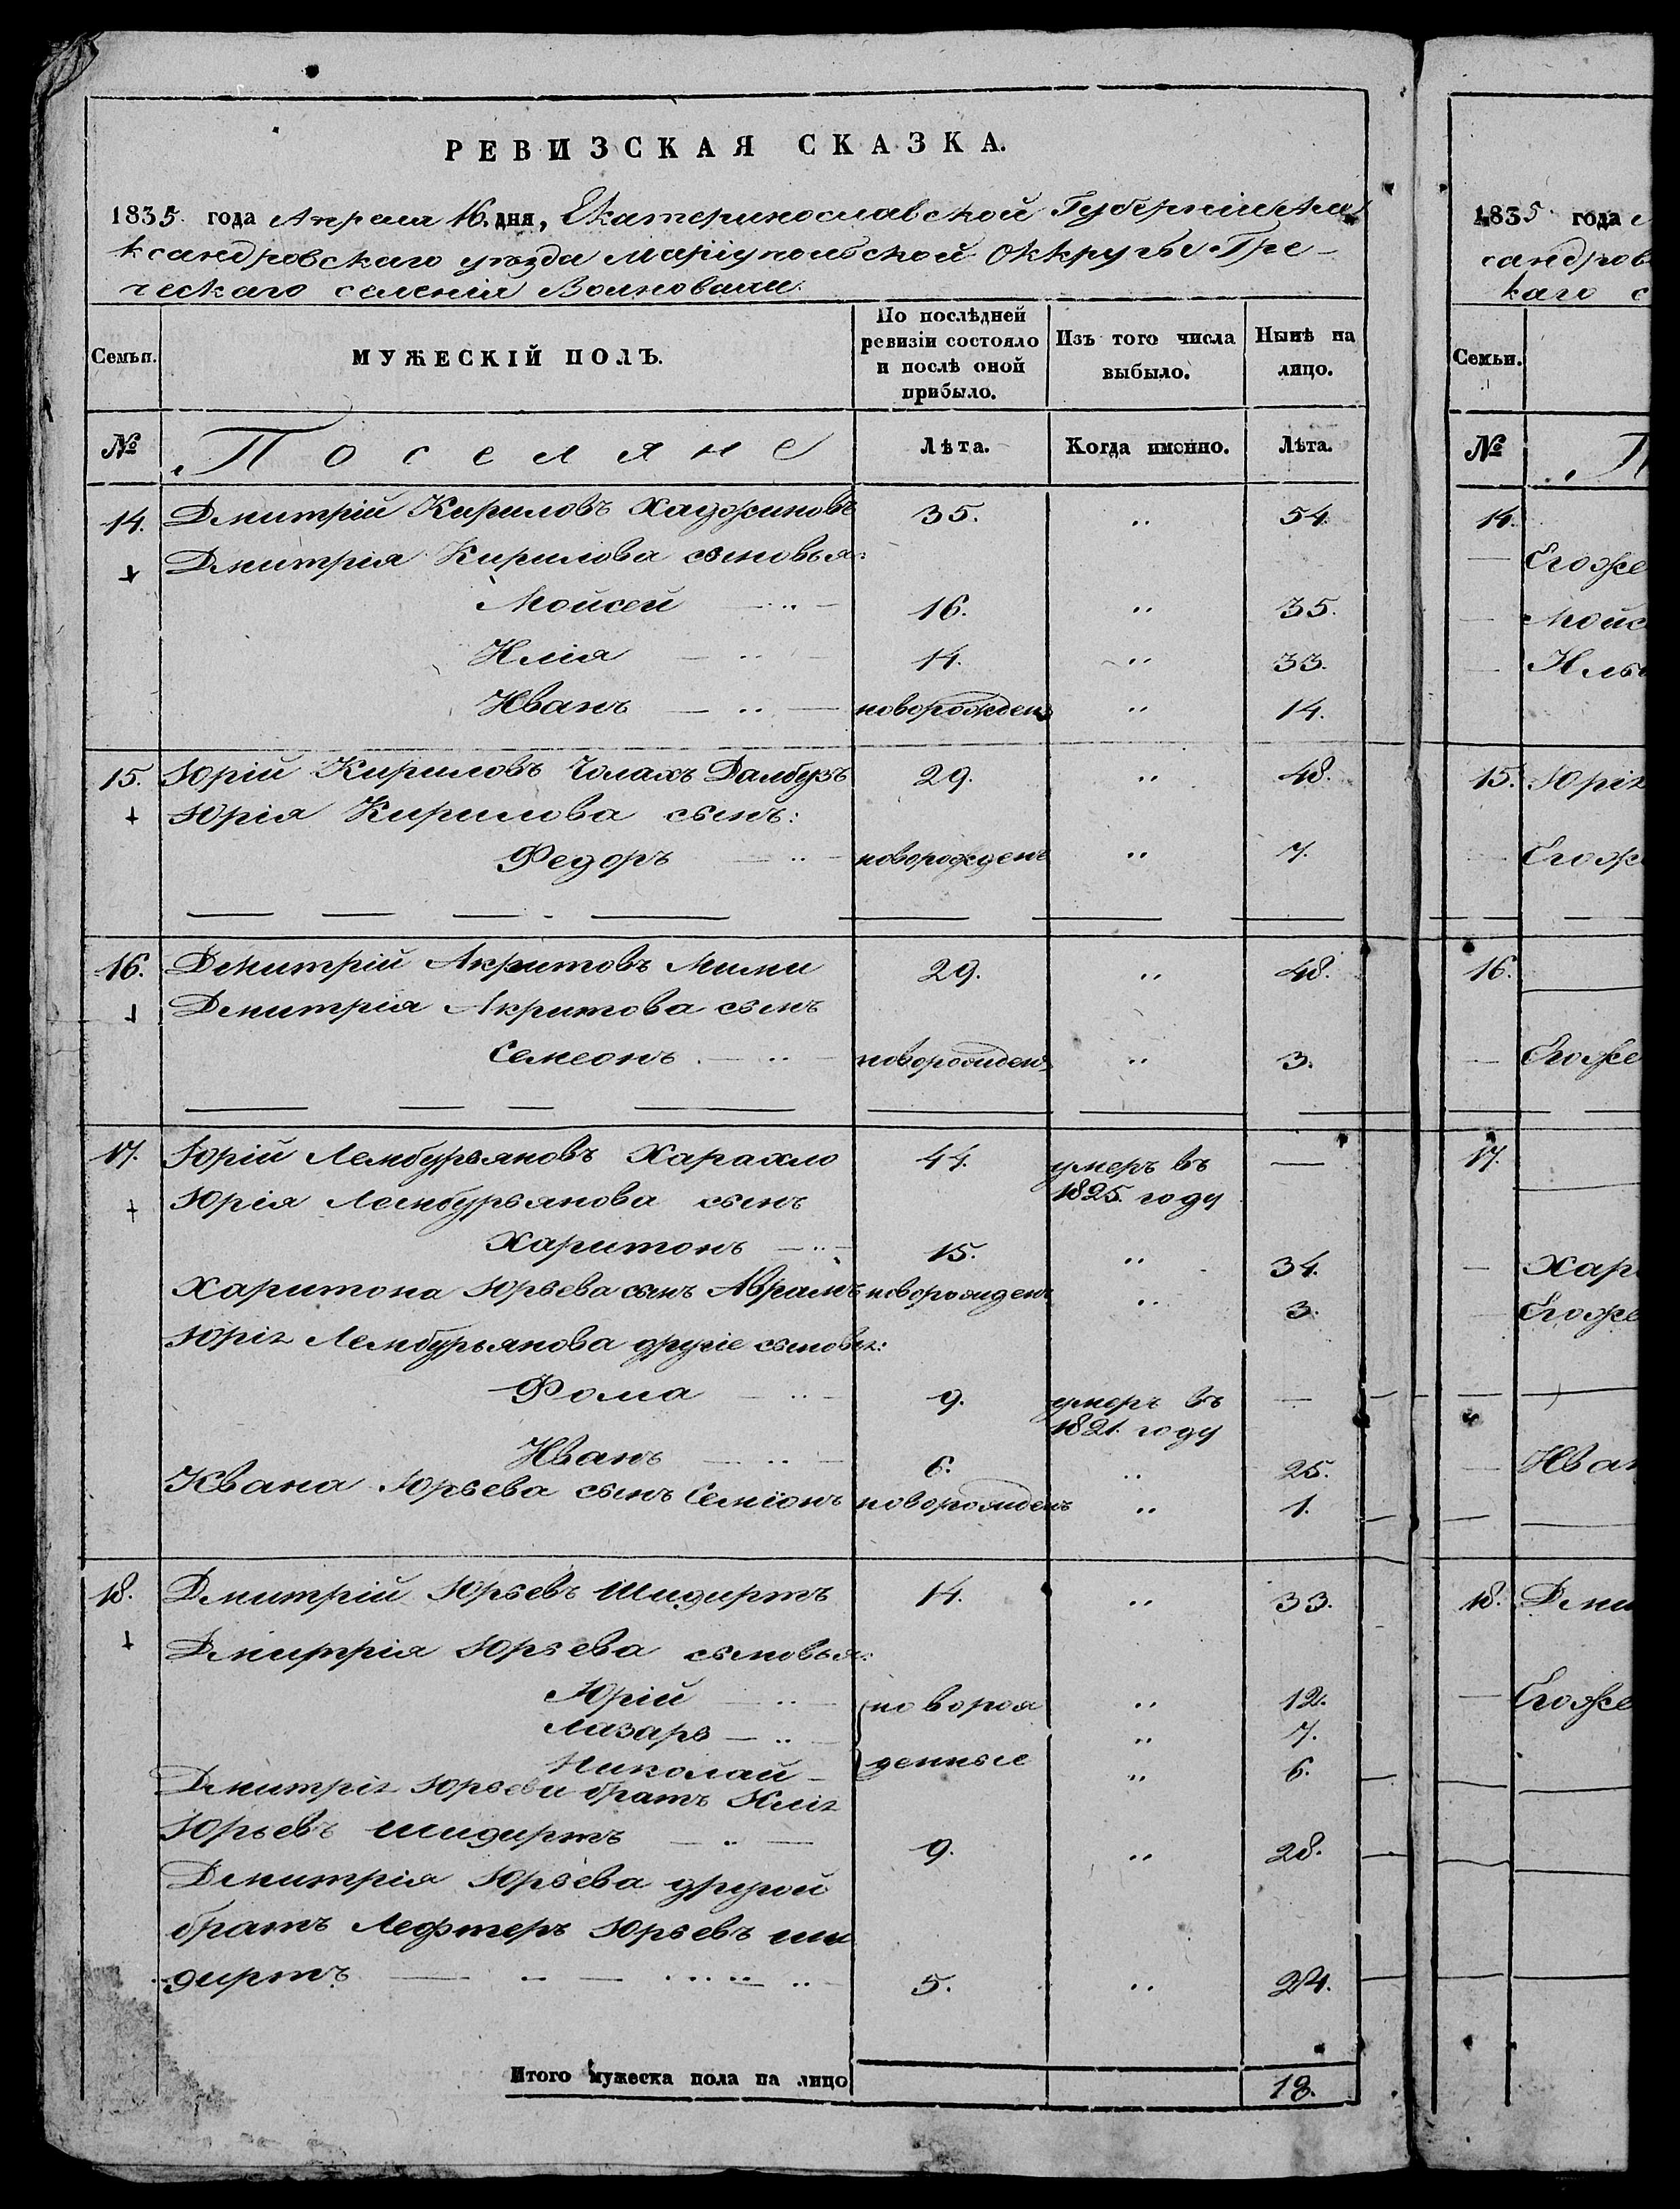 РЕВИЗСКАЯ СКАЗКА.
1835. года Апреля 16. дня, Екатеринославской Губерніи Але
ксандровскаго уѣзда Маріупольской Округи Гре-
ческаго селенія
Семьи. МУЖЕСКІЙ ПОЛЪ. По послѣдней ревизіи состояло и послѣ оной прибыло. Изъ того числа выбыло. Нынѣ на лицо.
№ Поселяне Лѣта. Когда именно. Лѣта.
14. Дмитрій Кириловъ Хаджиновъ 35. " 54.
Дмитрія Кирилова сыновья:
Мойсей 16. " 35.
Илія 14. " 33.
Иванъ новорожденъ " 14.
15. Юрій Кириловъ Чолахъ Далбузъ 29. " 48.
Юрія Кирилова сынъ:
Федоръ новорожденъ " 7.
16. Дмитрій Акритовъ Мими 29. " 48.
Дмитрія Акритова сынъ
Семеонъ новорожден " 3.
17. Юрій Лембурьяновъ Харахло 44. умеръ въ —
Юрія Лембурьянова сынъ 1825. году
Харитонъ 15. " 34.
Харитона Юрьева сынъ Аврамъ новорожденъ " 3.
Юрія Лембурьянова другіе сыновья:
Фома 9. умеръ въ —
1821. году
Иванъ 6. " 25.
Ивана Юрьева сынъ Семіонъ новорожденъ " 1.
18. Дмитрій Юрьевъ Шидиртъ 14. " 33.
Дмитрія Юрьева сыновья:
Юрій новорож " 12.
Лазарь " 7.
Николай денные " 6.
Дмитрія Юрьева братъ Илія
Юрьевъ Шидиртъ 9. " 28.
Дмитрія Юрьева другой
братъ Лефтеръ Юрьевъ Ши
диртъ 5. " 24.
Итого мужеска пола на лицо 18.
1835 года
сандров
каго с
Семьи.
№ П
14.
Егоже
Мойс
Илы
15. Юрія
Егож
16.
Егоже
17.
Хари
Егоже
Иван
18. Дми
Егоже